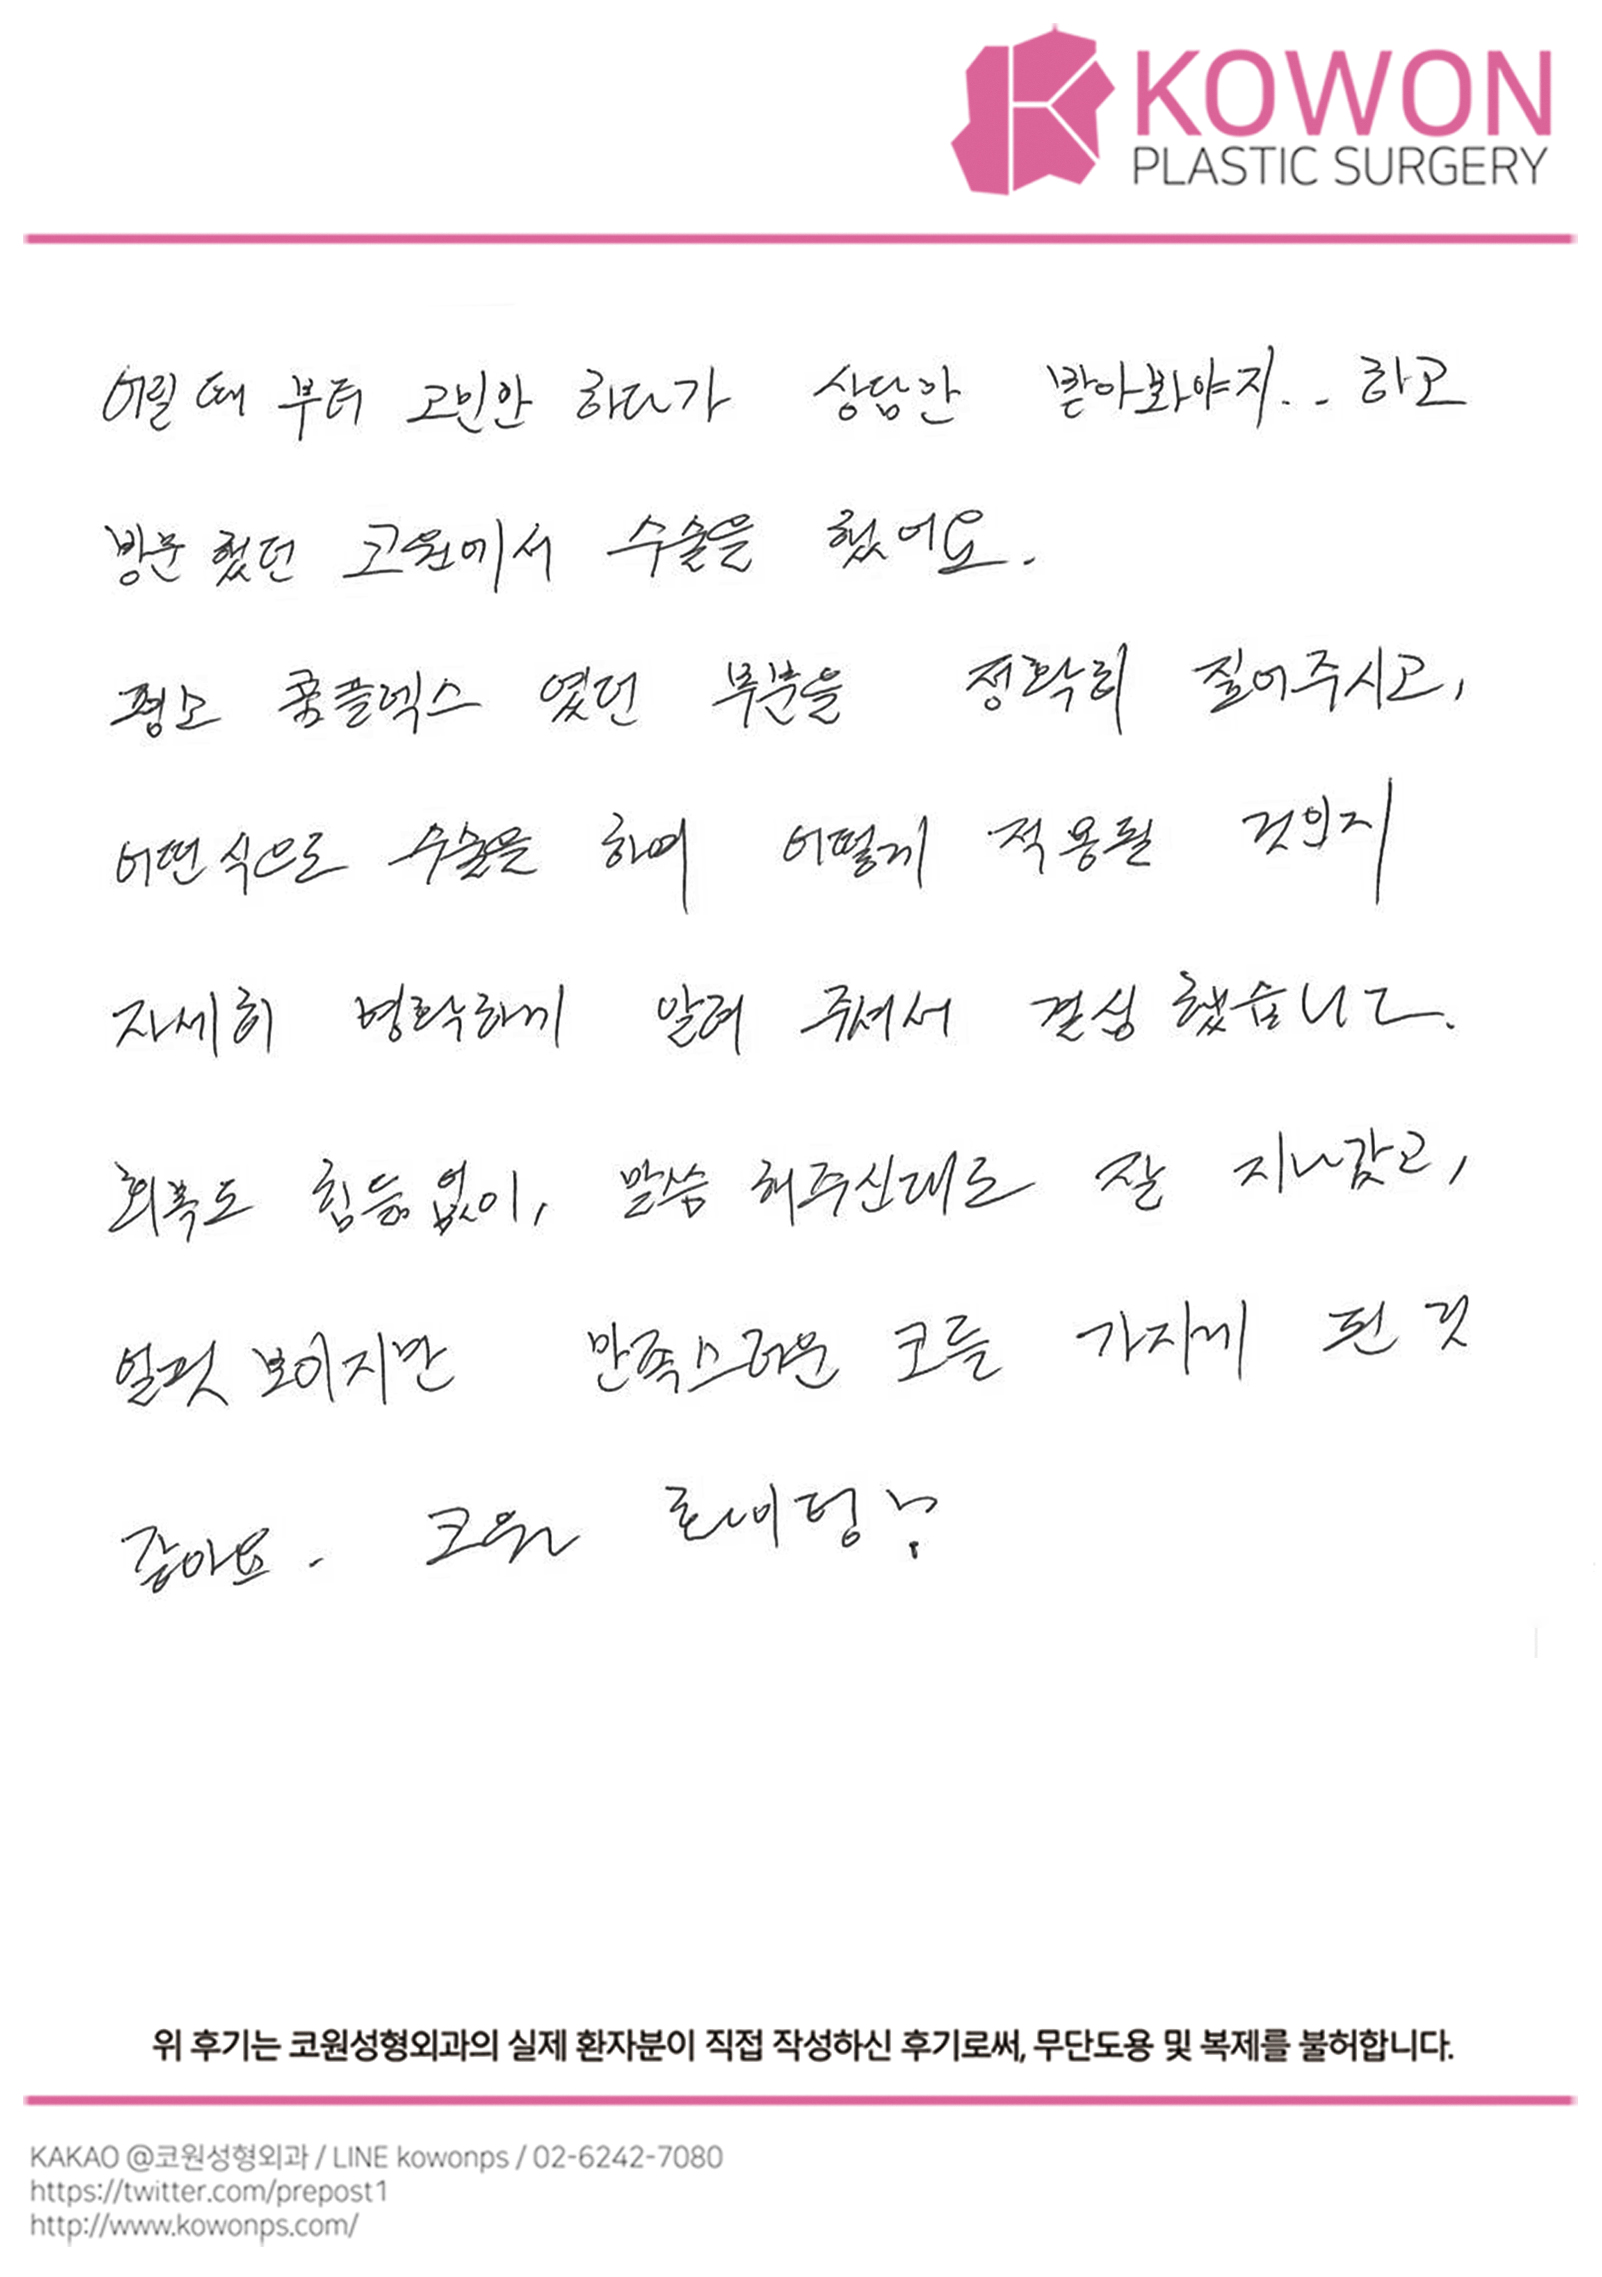 KOWON
PLASTIC SURGERY
어릴때 부터 고민만 하다가 상담만 받아봐야지.. 하고
방문했던 코원에서 수술을 했어요.
평소 콤플렉스 였던 부분을 정확히 짚어주시고,
어떤식으로 수술을 하며 어떻게 적용될 것인지
자세히 명확하게 알려 주셔서 결심했습니다.
회복도 힘듦없이, 말씀 해주신대로 잘 지나갔고,
얼핏 보이지만 만족스러운 코를 가지게 된 것
같아요. 코원 포에버
위 후기는 코원성형외과의 실제 환자분이 직접 작성하신 후기로써, 무단도용 및 복제를 불허합니다.
KAKAO @코원성형외과 / LINE kowonps / 02-6242-7080
https://twitter.com/prepost1
http://www.kowonps.com/